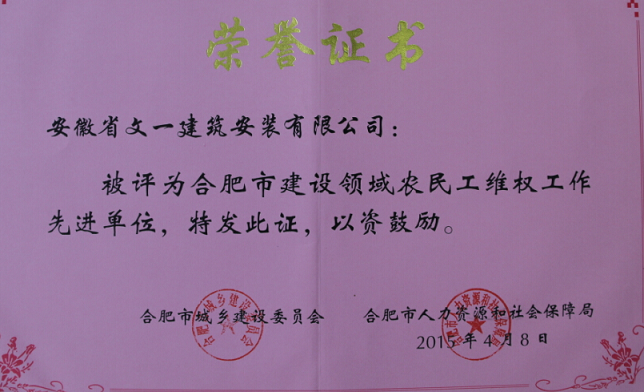 荣誉证书
安徽省文一建筑安装有限公司：
被评为合肥市建设领域农民工维权工作
先进单位，特发此证，以资鼓励。
合肥市城乡建设委员会 合肥市人力资源和社会保障局
2015年4月8日